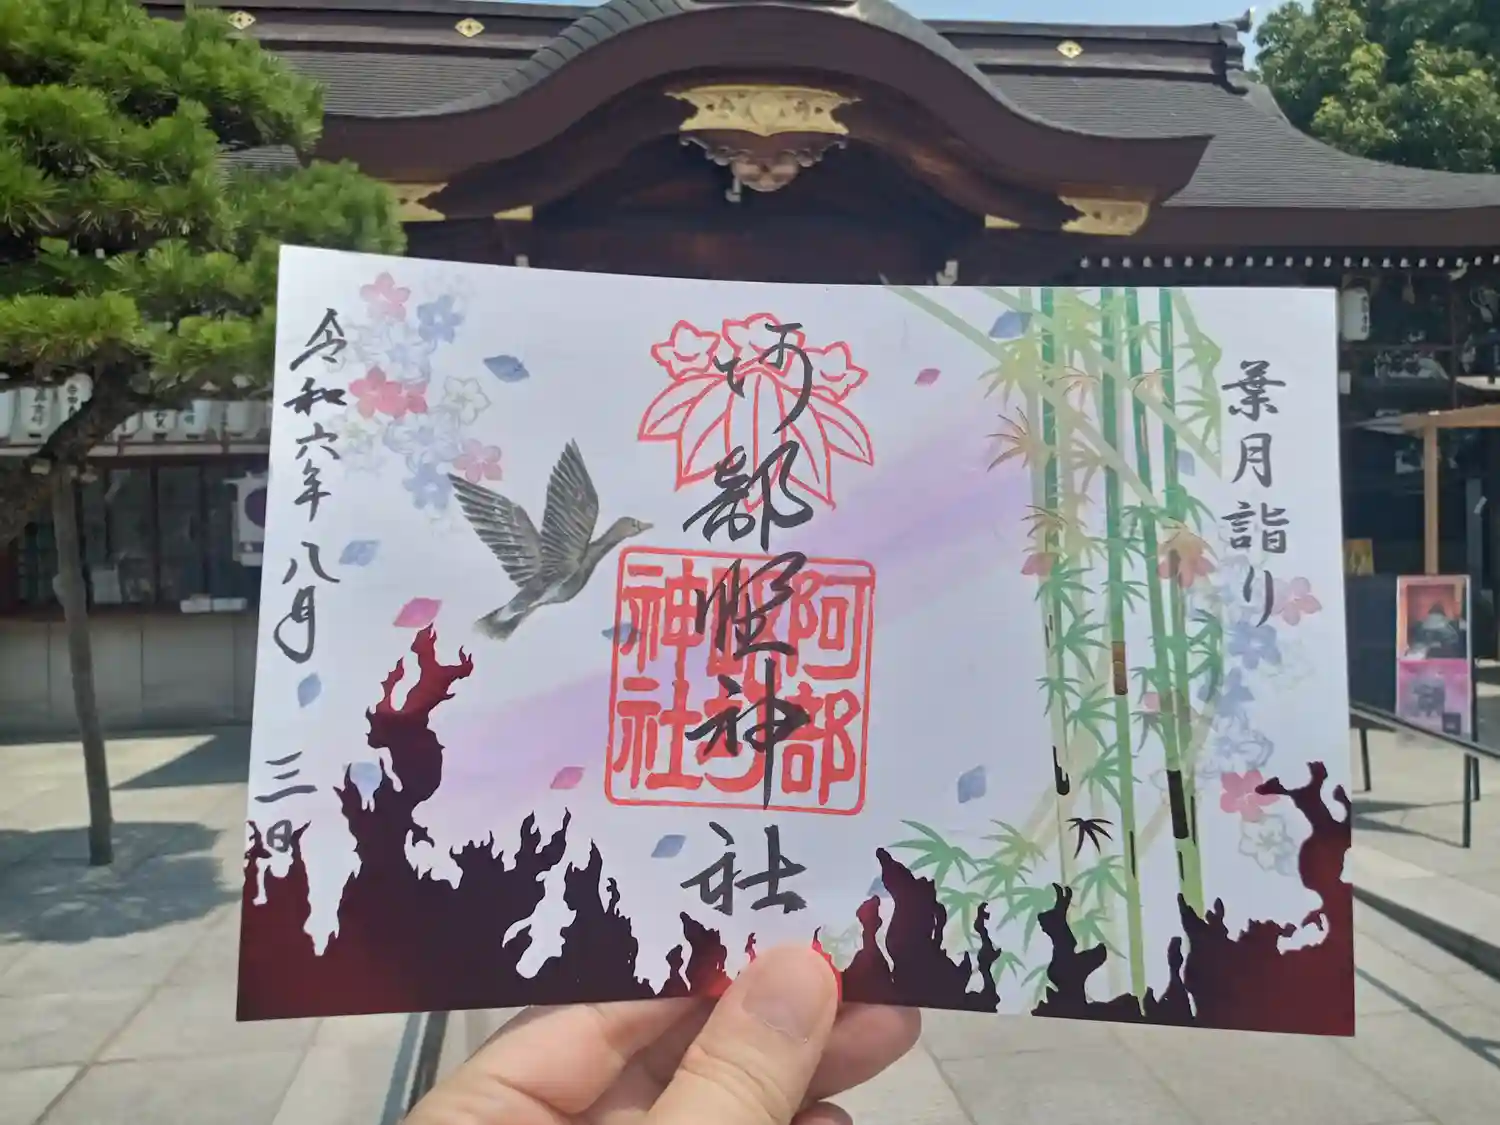 葉月詣り
阿部野神社
阿部
野
神社
令和六年八月三日